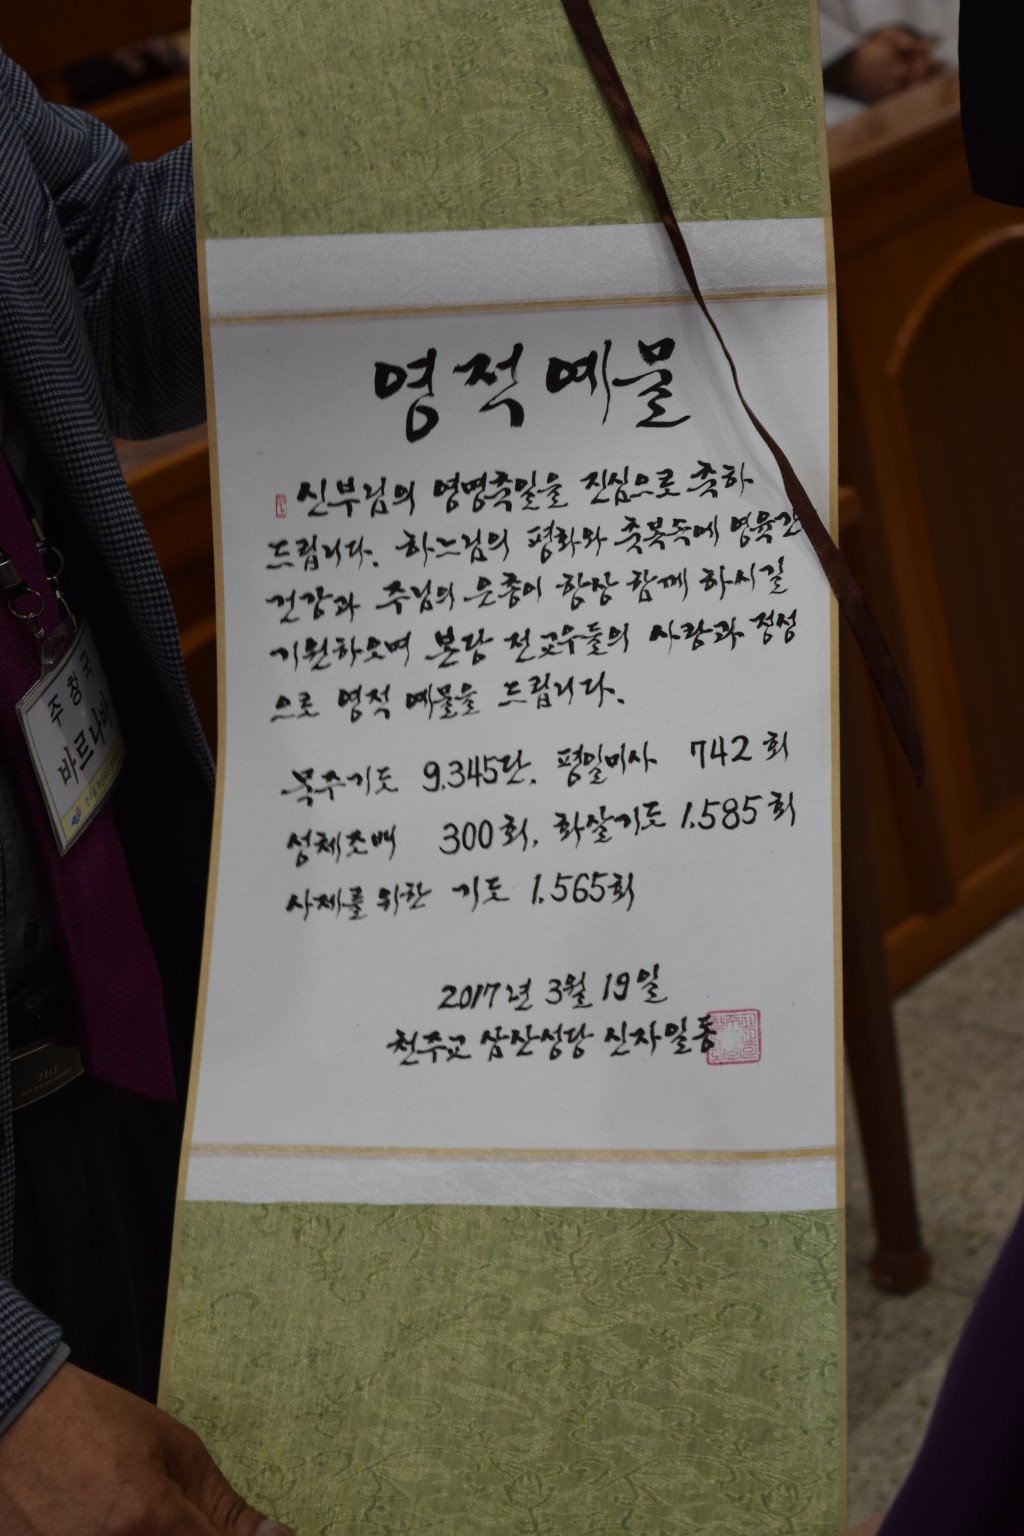 영적 예물
신부님의 영명축일을 진심으로 축하
드립니다. 하느님의 평화와 축복속에 영육간
건강과 주님의 은총이 항상 함께 하시길
기원하오며 본당 전교우들의 사랑과 정성
으로 영적 예물을 드립니다.
묵주기도 9.345단, 평일미사 742회
성체조배 300회, 화살기도 1.585회
사제를 위한 기도 1.565회
2017년 3월 19일
천주교 삼산성당 신자일동
주창국
바르나바